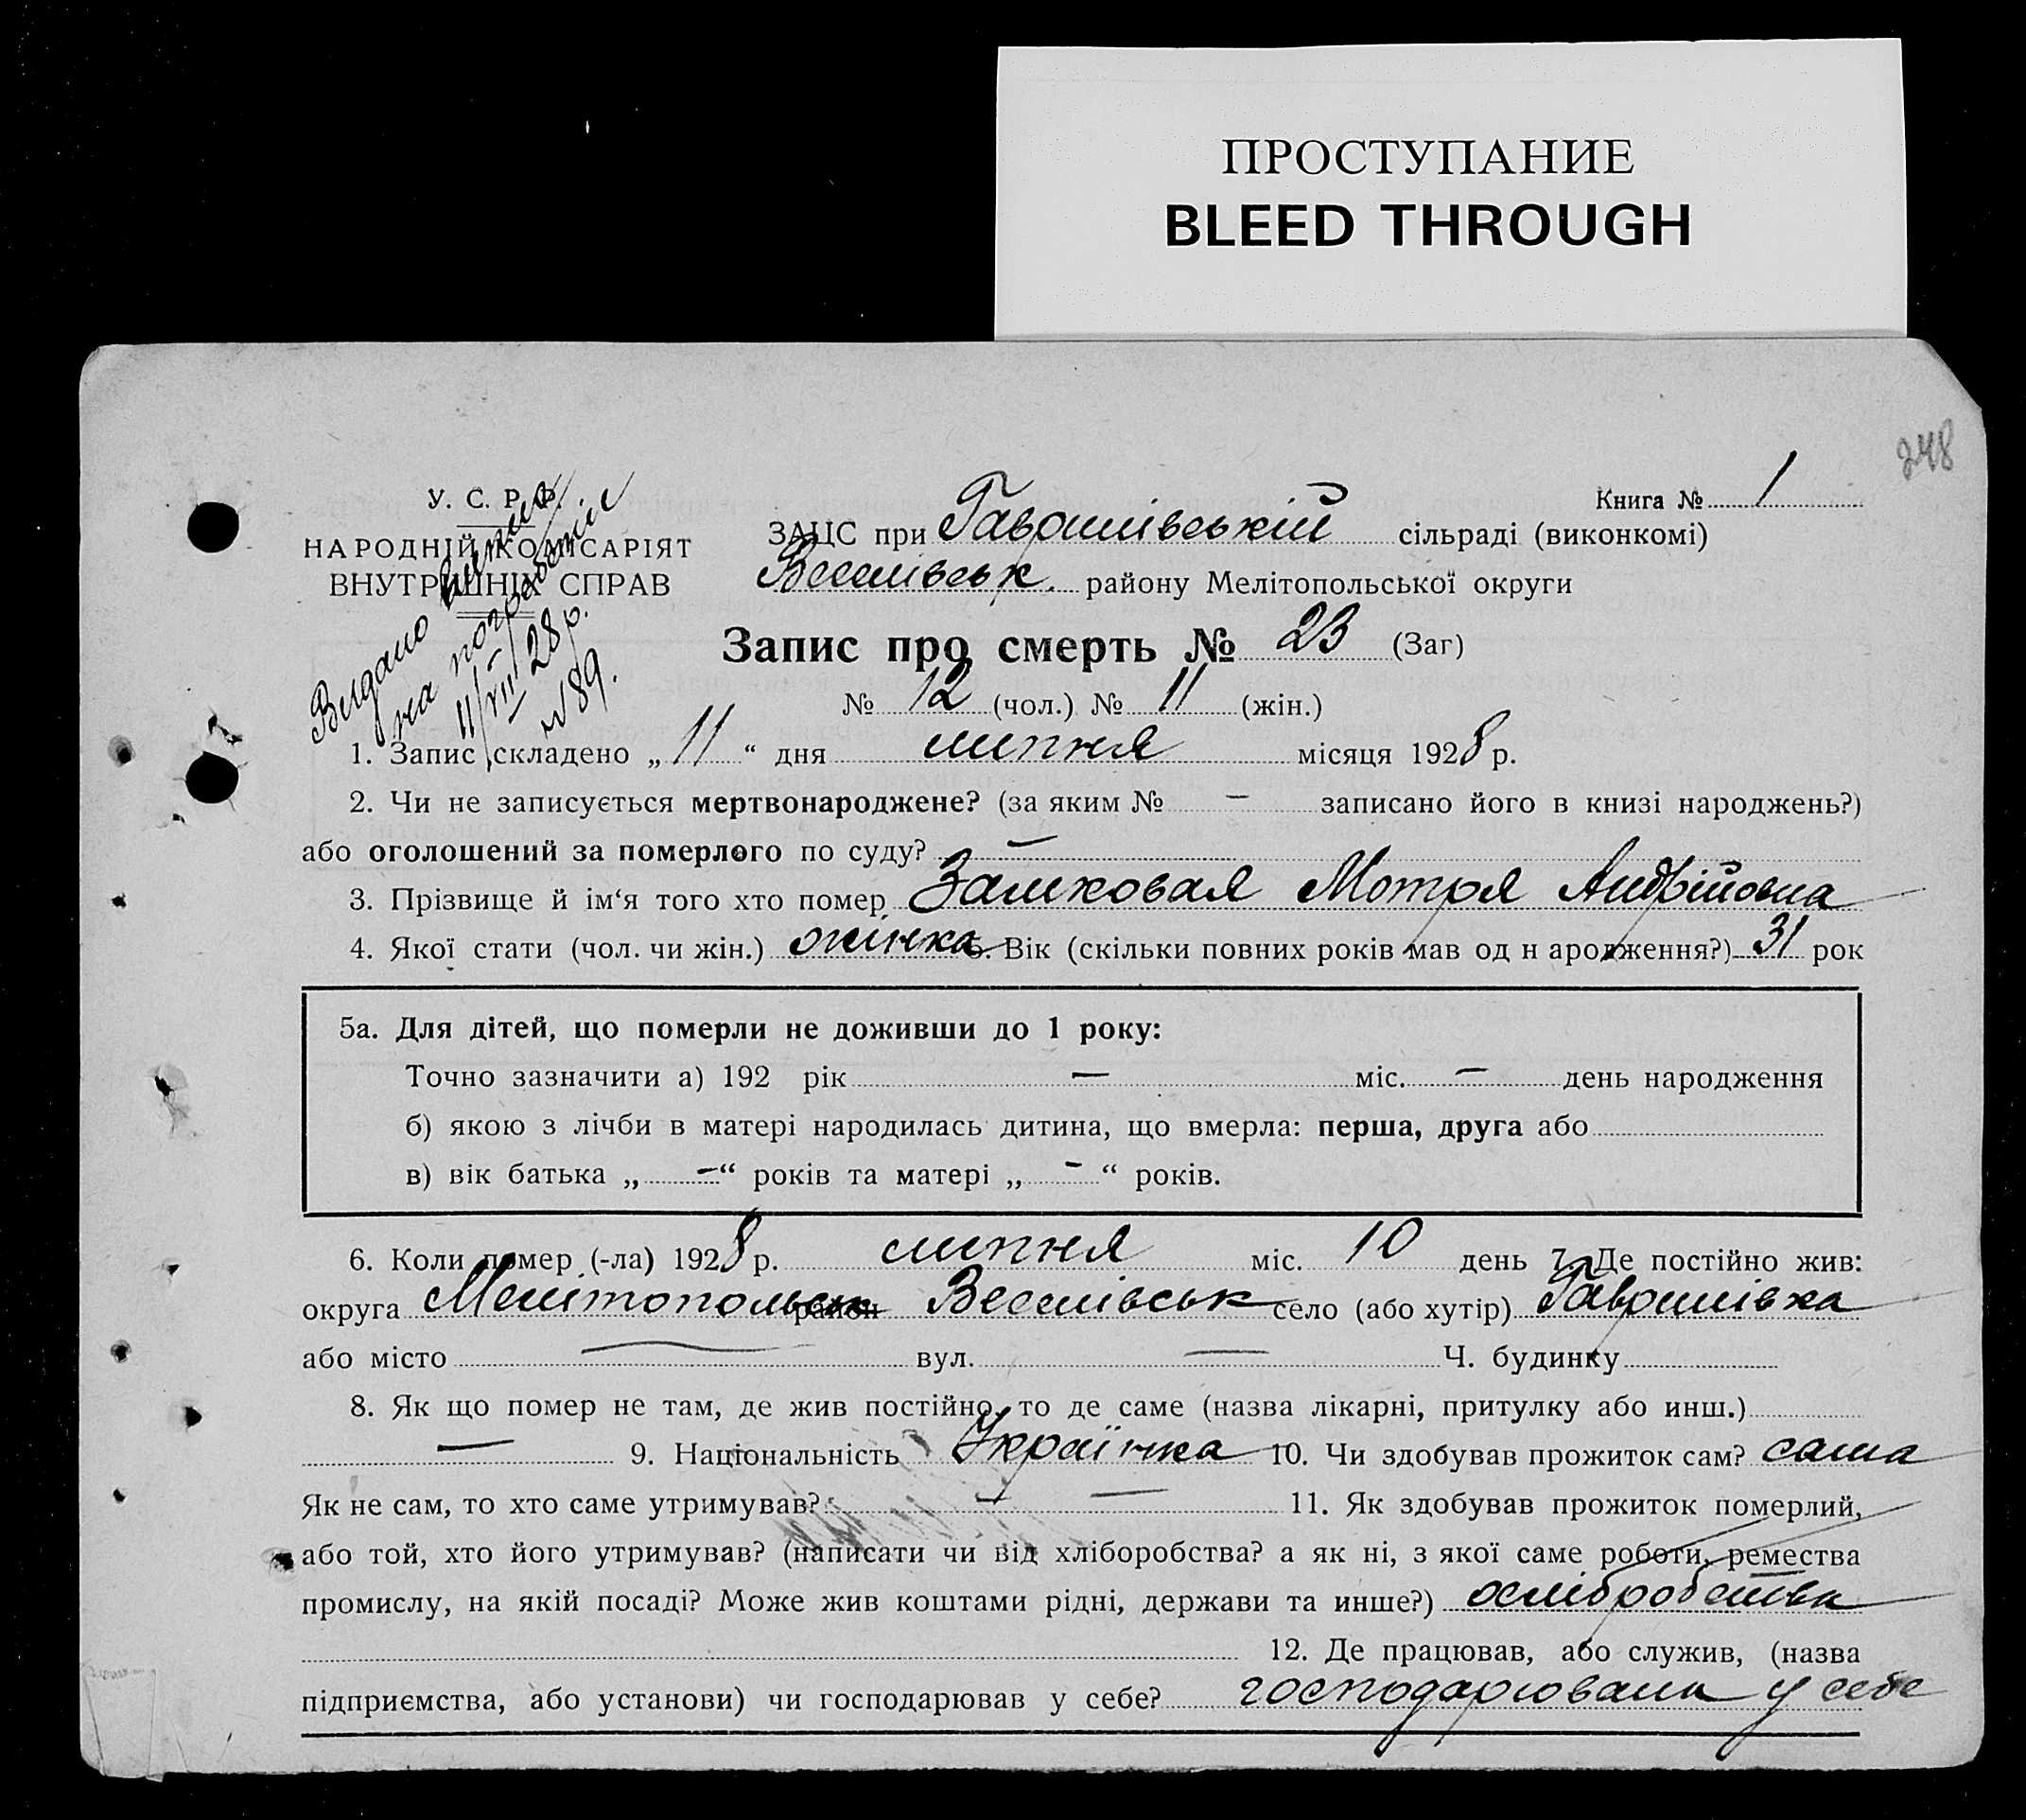 ПРОСТУПАНИЕ
BLEED THROUGH
248
У. С. Р. Р.
НАРОДНІЙ КОМІСАРІЯТ
ВНУТРІШНІХ СПРАВ
Видано виписк
на
11/VII 28 р.
№ 89.
Книга № 1
ЗАЦС при Гаврилівській сільраді (виконкомі)
Веселівськ. району Мелітопольської округи
Запис про смерть № 23 (Заг)
№ 12 (чол.) № 11 (жін.)
1. Запис складено „ 11 “ дня липня місяця 1928 р.
2. Чи не записується мертвонароджене? (за яким № — записано його в книзі народжень?)
або оголошений за померлого по суду? —
3. Прізвище й ім‘я того хто помер Замковая Мотря Андрійовна
4. Якої стати (чол. чи жін.) жінка 5. Вік (скільки повних років мав од н ародження?) 31 рок
5а. Для дітей, що померли не доживши до 1 року:
Точно зазначити а) 192 рік — міс. — день народження
б) якою з лічби в матері народилась дитина, що вмерла: перша, друга або
в) вік батька „ — “ років та матері „ — “ років.
6. Коли помер (-ла) 1928 р. липня міс. 10 день 7. Де постійно жив:
округа Мелітопольськ район Веселівськ село (або хутір) Гаврилівка
або місто — вул. — Ч. будинку
8. Як що помер не там, де жив постійно, то де саме (назва лікарні, притулку або инш.)
— 9. Національність Українка 10. Чи здобував прожиток сам? сама
Як не сам, то хто саме утримував? — — 11. Як здобував прожиток померлий,
або той, хто його утримував? (написати чи від хліборобства? а як ні, з якої саме роботи, ремества
промислу, на якій посаді? Може жив коштами рідні, держави та инше?) хлібробства
12. Де працював, або служив, (назва
підприємства, або установи) чи господарював у себе? господарювала у себе